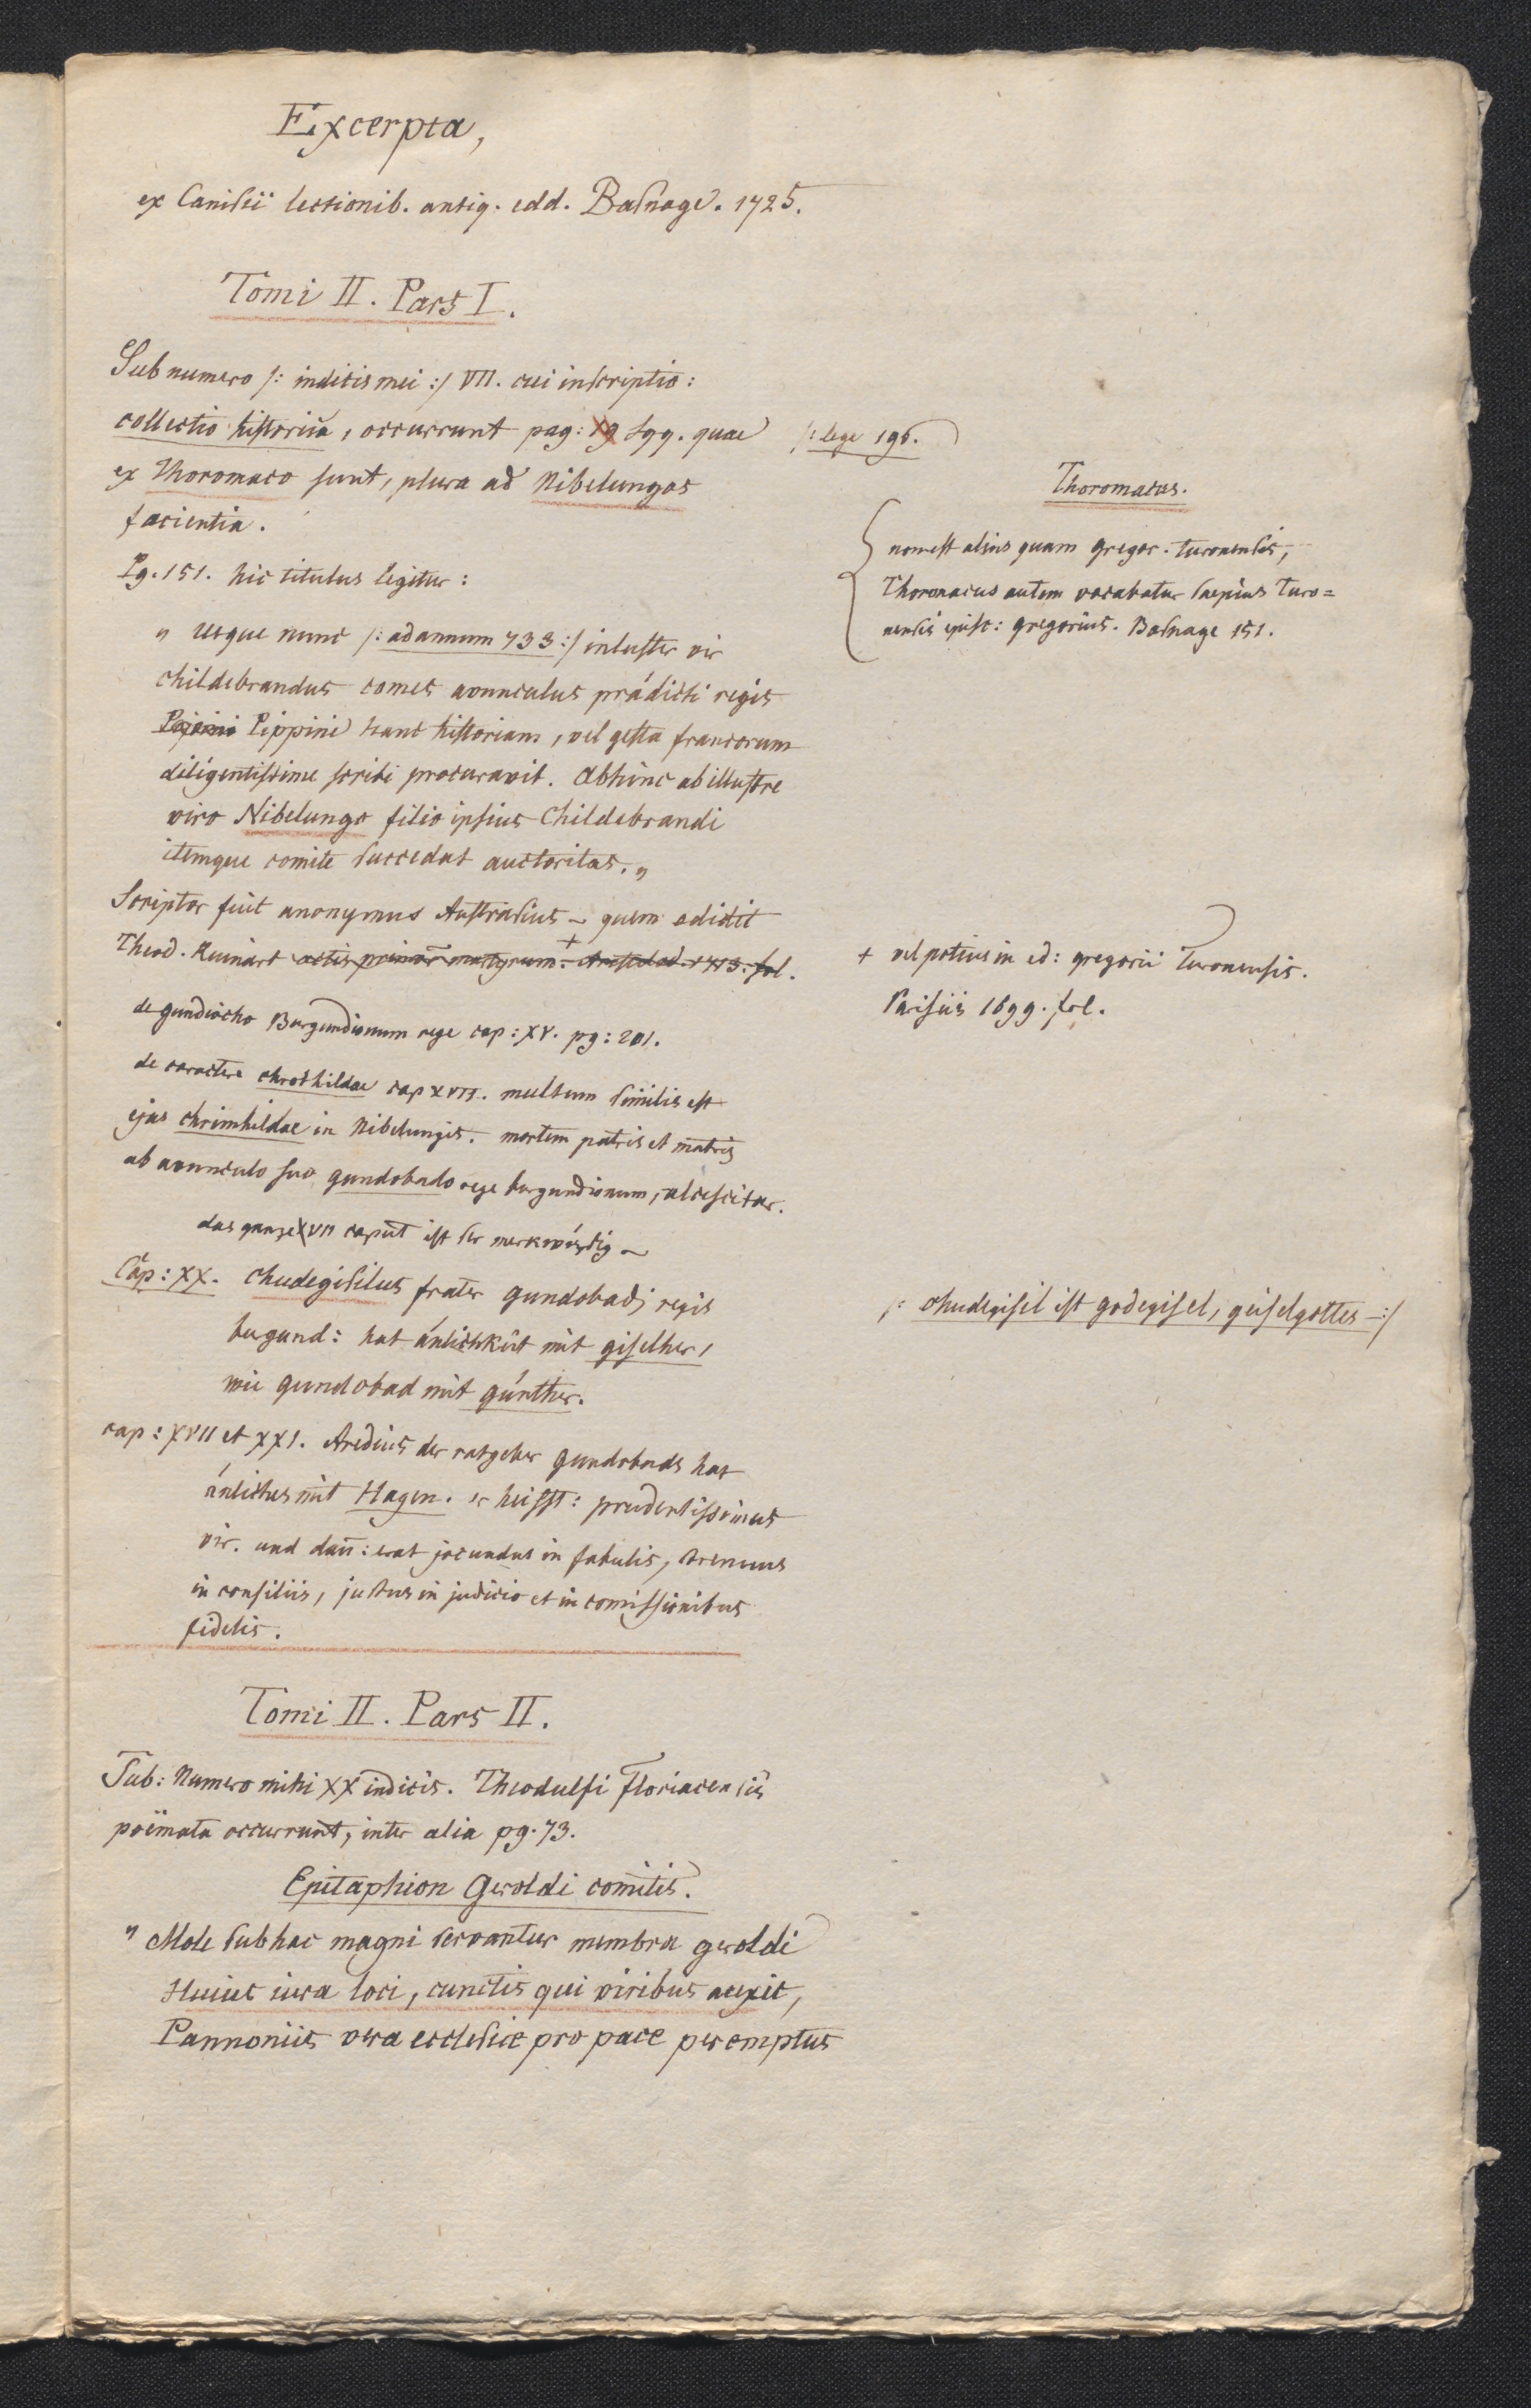 Excerpta,
ex Canisii lectionib. antiq. edd. Basnage. 1725.
Tomi II. Pars I.
Sub numero /: indicis mei :/ VII. cui inscriptio:
collectio historica, occurrunt pag: sqq. quae
/: lege 196.
ex Thoromaco sunt, plura ad Nibelungos
facientia.
Thoromacus.
non est alius quam gregor. turonensis,
Thoromacus autem vocabatur saepius Turo=
nensis episc: gregorius. Basnage 151.
Pg. 151. hic titulus legitur:
" usque nunc /: ad annum 733 :/ inluster vir
childebrandus comes avunculus prádicti regis
Pippini hanc historiam, vel gesta francorum
diligentissime scribi procuravit. Abhinc ab illustre
viro Nibelungo filio ipsius Childebrandi
itemque comite succedat auctoritas. "
Scriptor fuit anonymus Austrasius – quem edidit
Theod. Ruinart actis primor martyrum. + Amstelod. 1713. fol.
+ vel potius in ed: gregorii Turonensis.
Parisiis 1699. fol.
de gundiocho Burgundionum rege cap: XV. pg: 201.
de caractere chrothildae cap XVII. multum similis est
ejus chrimhildae in Nibelungis. mortem patris et matris
ab avunculo suo gundobado rege burgundionum, ulciscitur.
das ganze XVII caput ist ser merkwürdig –
Cap: XX. chudegisilus frater gundobadi regis
burgund: hat ánlichkeit mit giselher,
wie gundobad mit gúnther.
/: chudegisil ist godegisel, geiselgottes –:/
cap: XVII et XXI. Aredius der ratgeber gundobads hat
ánliches mit Hagen. er heisst: prudentissimus
vir. und dan̄: erat jocundus in fabulis, strenuus
in consiliis, justus in judicio et in comissionibus
fidelis.
Tomi II. Pars II.
Sub: Numero mihi XX indicis. Theodulfi floriacensis
poëmata occurrunt, inter alia pg. 73.
Epitaphion Geroldi comitis.
" Mole sub hac magni servantur membra geroldi
Huius iura loci, cunctis qui viribus auxit,
Pannoniis vera ecclesiae pro pace peremptus